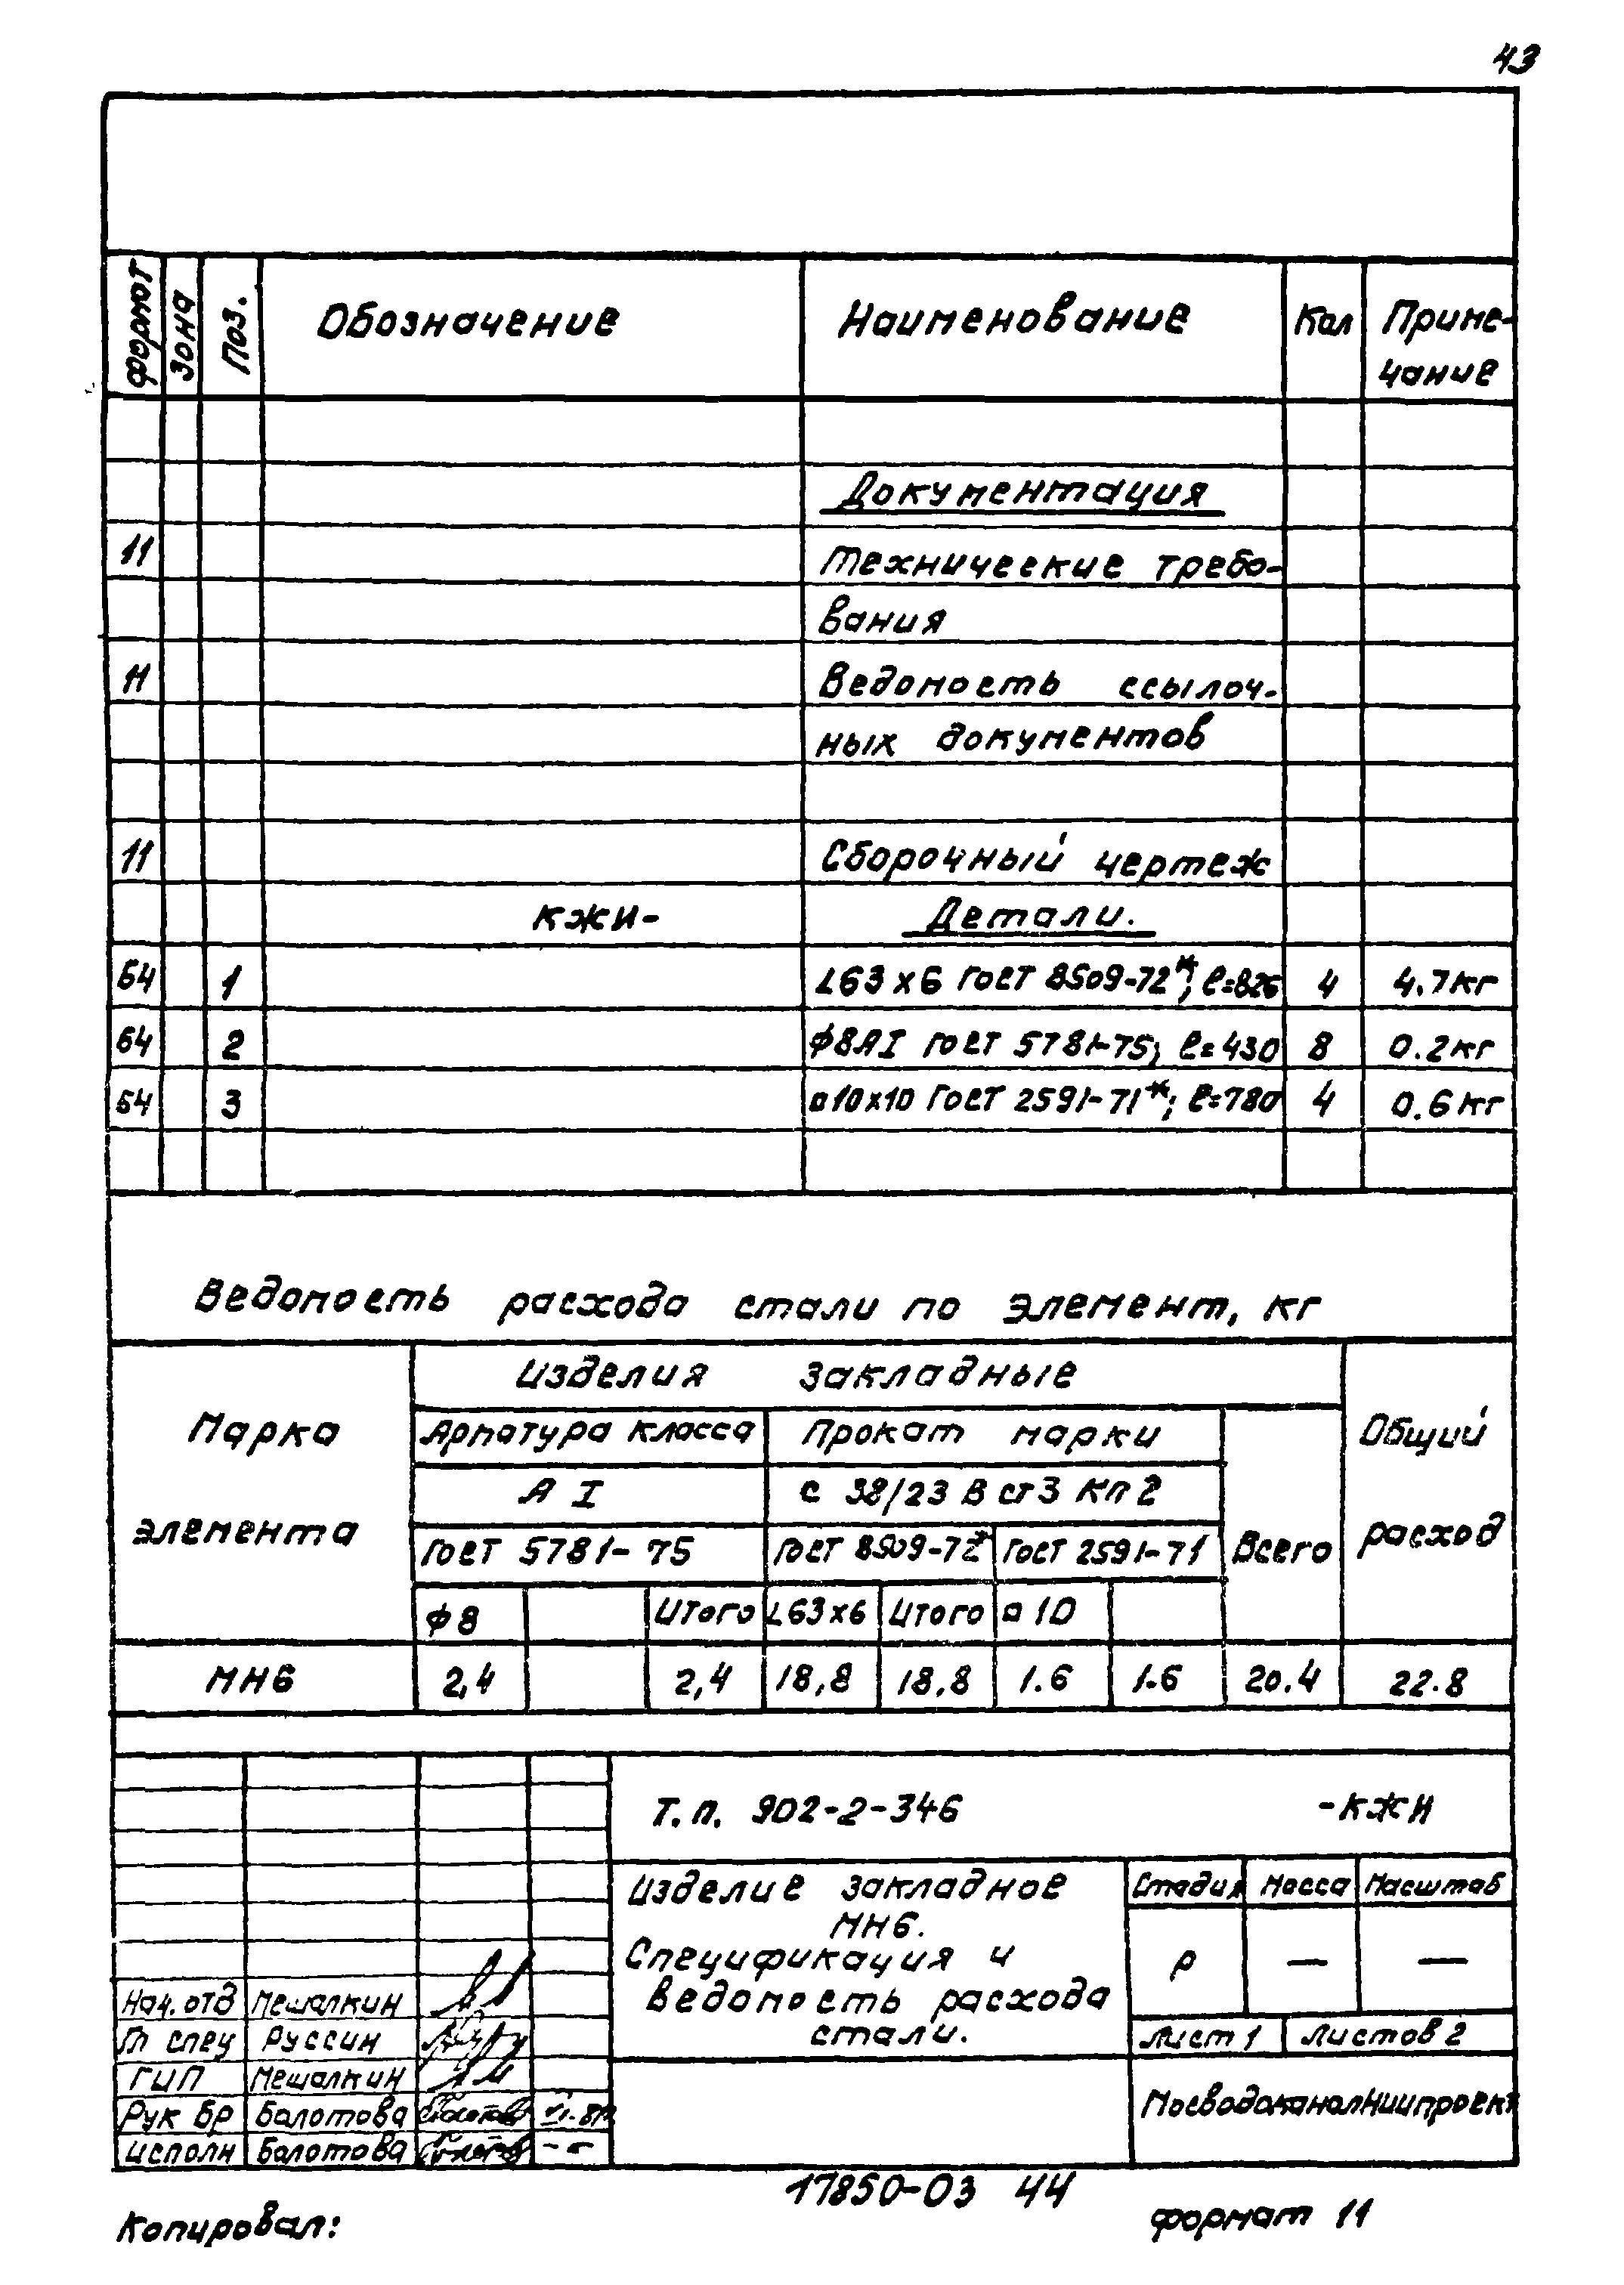 43
Формат Зона Поз. Обозначение Наименование Кол Приме-
чание
Документация
11 Технические требо-
вания
11 Ведомость ссылоч-
ных документов
11 Сборочный чертеж
КЖИ- Детали.
Б4 1 L63х6 ГОСТ 8509-72*; ℓ=826 4 4.7кг
Б4 2 ф8АI ГОСТ 5781-75; ℓ=430 8 0.2кг
Б4 3 □10х10 ГОСТ 2591-71*; ℓ=780 4 0.6кг
Ведомость расхода стали по элемент, кг
Марка элемента
Изделия закладные
Общий расход
Арматура класса Прокат марки
Всего
А I С 38/23 В ст 3 Кп 2
ГОСТ 5781-75 ГОСТ 8509-72* ГОСТ 2591-71
ф8 Итого L63х6 Итого □10
МН6 2,4 2,4 18,8 18,8 1.6 1.6 20.4 22.8
Т.п. 902-2-346 -КЖИ
Изделие закладное
МН6.
Спецификация и
ведомость расхода
стали.
Стадия Масса Масштаб
Р — —
Лист 1 Листов 2
МосводоканалНИИпроект
Нач. отд Мешалкин
Гл спец Руссин
ГИП Мешалкин
Рук бр Болотова
Исполн Болотова
17850-03 44
Копировал: Формат 11